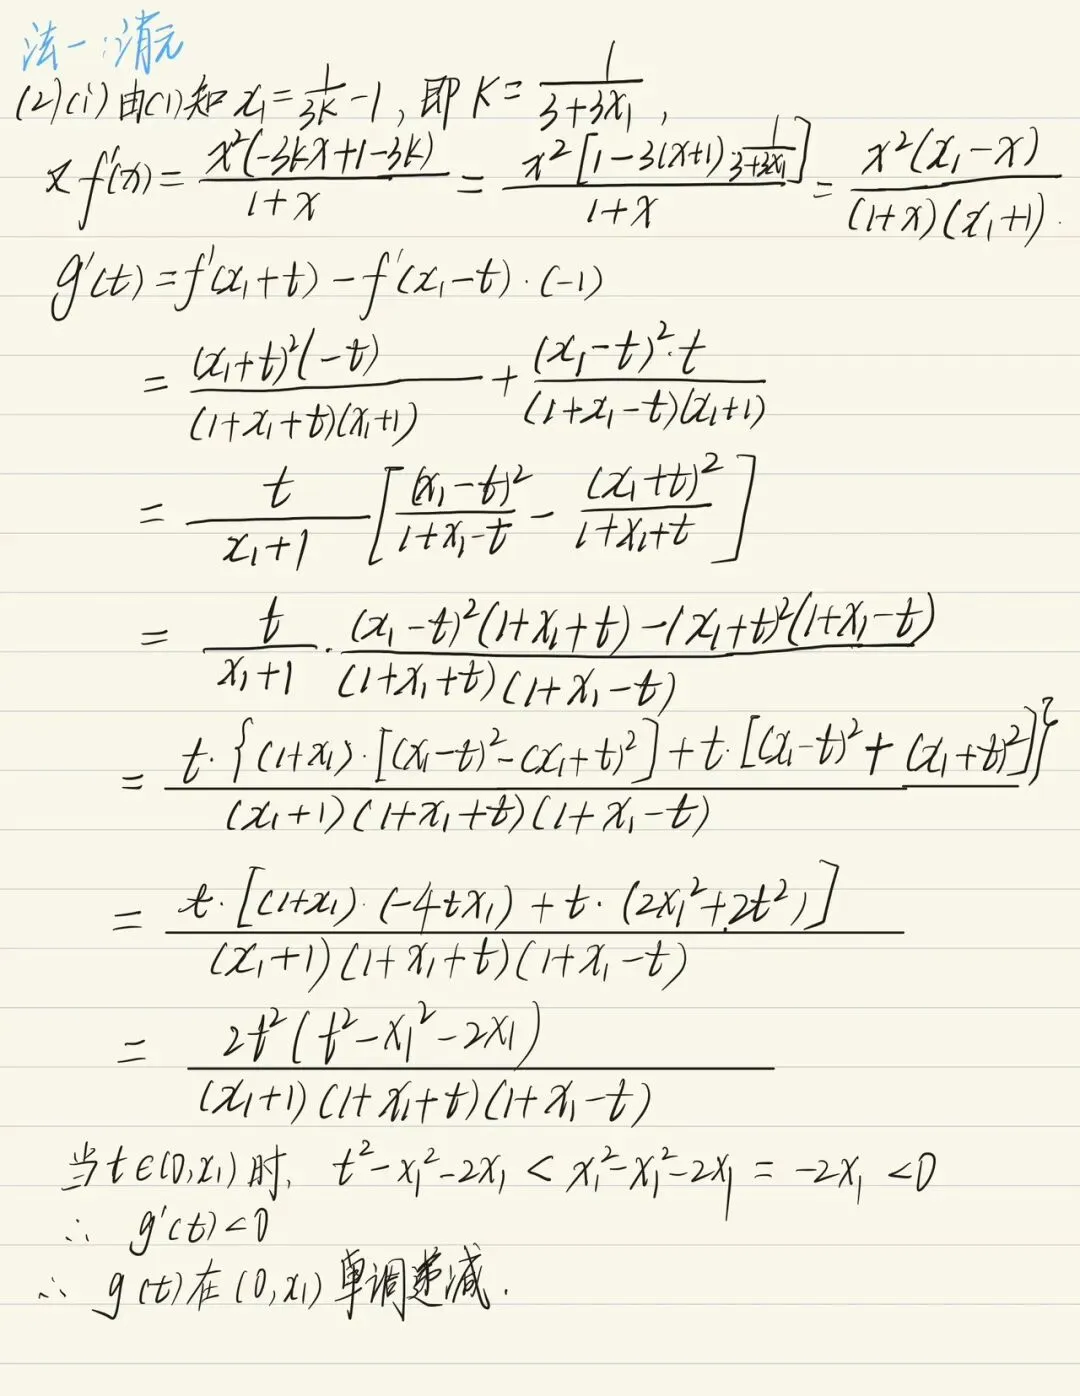 法一:消元
(2)(i) 由(1)知 x₁=1/(3k)-1, 即 k=1/(3+3x₁),
又 f'(x)=x²(-3kx+1-3k)/(1+x)=x²[1-3(x+1)·1/(3+3x₁)]/(1+x)=x²(x₁-x)/((1+x)(x₁+1)).
g'(t)=f'(x₁+t)-f'(x₁-t)·(-1)
=(x₁+t)²(-t)/((1+x₁+t)(x₁+1))+(x₁-t)²·t/((1+x₁-t)(x₁+1))
=t/(x₁+1)[(x₁-t)²/(1+x₁-t)-(x₁+t)²/(1+x₁+t)]
=t/(x₁+1)·((x₁-t)²(1+x₁+t)-(x₁+t)²(1+x₁-t))/((1+x₁+t)(1+x₁-t))
=t·{(1+x₁)·[(x₁-t)²-(x₁+t)²]+t·[(x₁-t)²+(x₁+t)²]}/((x₁+1)(1+x₁+t)(1+x₁-t))
=t·[(1+x₁)·(-4tx₁)+t·(2x₁²+2t²)]/((x₁+1)(1+x₁+t)(1+x₁-t))
=2t²(t²-x₁²-2x₁)/((x₁+1)(1+x₁+t)(1+x₁-t))
当t∈(0,x₁)时, t²-x₁²-2x₁<x₁²-x₁²-2x₁=-2x₁<0
∴ g'(t)<0
∴ g(t)在(0,x₁)单调递减.